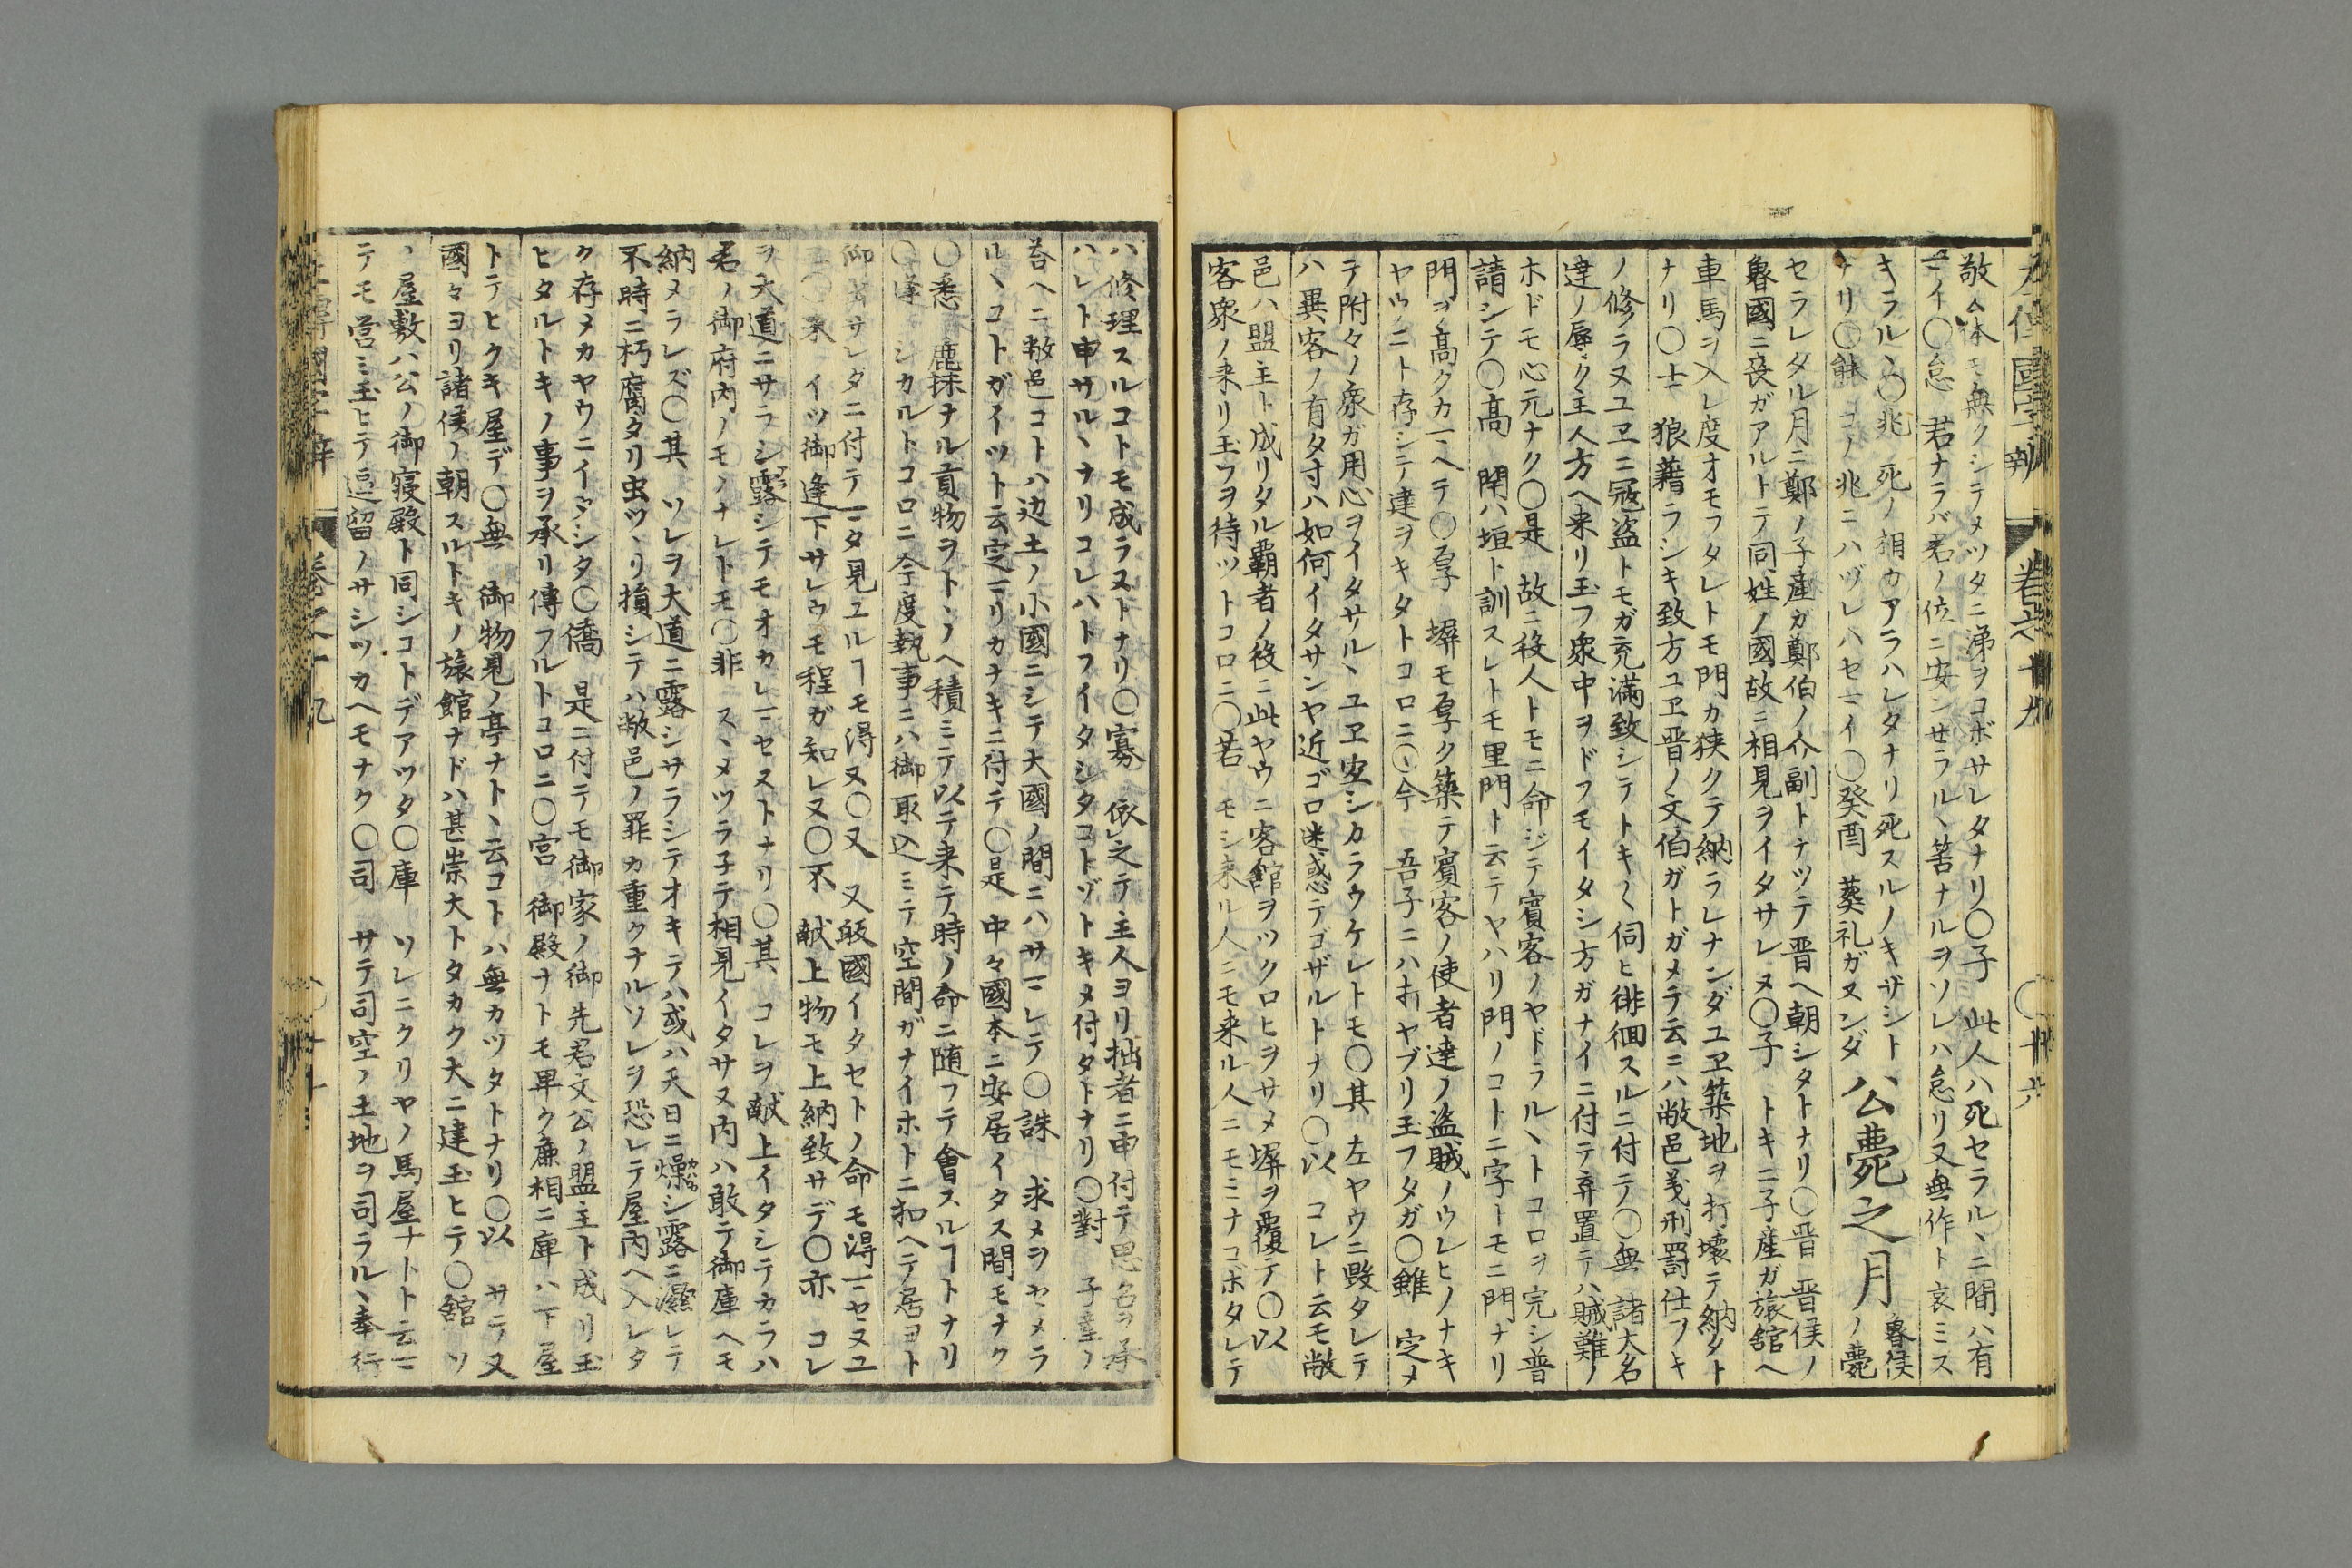 左傳國字辨 卷之十九
敬ム体モ無クシテメツタニ涕ヲコボサレタナリ〇子 此人ハ死セラルヽニ間ハ有
マイ〇怠 君ナラバ君ノ位ニ安ンゼラルヽ筈ナルヲソレハ怠リ又無作ト哀ミス
キラルヽ〇兆 死ノ相カアラハレタナリ死スルノキザシト
ナリ〇能 コノ兆ニハヅレハセマイ〇癸酉 葬礼ガスンダ 公薨之月 魯侯ノ薨
セラレタル月ニ鄭ノ子産カ鄭伯ノ介副トナツテ晋ヘ朝シタトナリ〇晋 晋侯ノ
魯國ニ喪ガアルトテ同姓ノ國故ニ相見ヲイタサレヌ〇子 トキニ子産ガ旅舘ヘ
車馬ヲ入レ度オモフタレトモ門カ狭クテ納ラレナンダユヱ築地ヲ打壊テ納タト
ナリ〇士 狼藉ラシキ致方ユヱ晋ノ文伯ガトガメテ云ニハ敝邑義刑罸仕フキ
ノ修ラヌユヱニ冦盗トモガ充満致シテトキ〱伺ヒ徘徊スルニ付テ〇無 諸大名
達ノ辱ク主人方ヘ来リ玉フ衆中ヲドフモイタシ方ガナイニ付テ弃置テハ賊難ノ
ホドモ心元ナク〇是 故ニ役人トモニ命ジテ賓客ノヤドラルヽトコロヲ完シ普
請シテ〇高 閈ハ垣ト訓スレトモ里門ト云テヤハリ門ノコトニ字トモニ門ナリ
門ヲ高クカマヘテ〇厚 墻モ厚ク築テ賓客ノ使者達ノ盗賊ノウレヒノナキ
ヤウニト存シテ建ヲキタトコロニ〇今 吾子ニハ打ヤブリ玉フタガ〇雖 定メ
テ附々ノ衆ガ用心ヲイタサルヽユヱ安シカラウケレトモ〇其 左ヤウニ毀タレテ
ハ異客ノ有タ寸ハ如何イタサンヤ近ゴロ迷惑テゴザルトナリ〇以 コレト云モ敝
邑ハ盟主ト成リタル覇者ノ役ニ此ヤウニ客舘ヲツクロヒヲサメ墻ヲ覆テ〇以
客衆ノ来リ玉フヲ待ツトコロニ〇若 モシ来ル人ニモ来ル人ニモミナコボタレテ
ハ修理スルコトモ成ラヌトナリ〇寡 依之テ主人ヨリ拙者ニ申付テ思名ヲ承
ハレト申サルヽナリコレハトフイタシタコトゾトキメ付タトナリ〇對 子産ノ
荅ヘニ敝邑コトハ边土ノ小國ニシテ大國ノ間ニハサマレテ〇誅 求メヲセメラ
ルヽコトガイツト云定マリカナキニ付テ〇是 中々國本ニ安居イタス間モナク
〇悉 麁抹ナル貢物ヲトヽノヘ積ミテ以テ来テ時ノ命ニ随フテ會スルヿトナリ
〇逢 シカルトコロニ今度執事ニハ御取込ミテ空間ガナイホトニ扣ヘテ居ヨト
仰セサレダニ付テマタ見ユルヿモ得ヌ〇又 又敝國イタセトノ命モ得マセヌユ
〇未 イツ御逢下サレウモ程ガ知レヌ〇不 献上物モ上納致サデ〇亦 コレ
ヲ大道ニサラシ露シテモオカレマセヌトナリ〇其 コレヲ献上イタシテカラハ
君ノ御府内ノモノナレトモ〇非 スヽメツラ子テ相見イタサヌ内ハ敢テ御庫ヘモ
納メラレズ〇其 ソレヲ大道ニ露シサラシテオキテハ或ハ天日ニ燥シ露ニ濕レテ
不時ニ朽腐タリ虫ツヽリ損シテハ敝邑ノ罪カ重クナルソレヲ恐レテ屋内ヘ入レタ
ク存メカヤウニイタシタ〇僑 是ニ付テモ御家ノ御先君文公ノ盟主ト成リ玉
ヒタルトキノ事ヲ承リ傳フルトコロニ〇宮 御殿ナトモ卑ク廉相ニ庳ハ下屋
トテヒクキ屋デ〇無 御物見ノ亭ナトヽ云コトハ無カツタトナリ〇以 サテ又
國々ヨリ諸侯ノ朝スルトキノ旅館ナドハ甚崇大トタカク大ニ建玉ヒテ〇舘 ソ
ノ屋敷ハ公ノ御寝殿ト同シコトデアツタ〇庫 ソレニクリヤノ馬屋ナトト云マ
テモ営ミ玉ヒテ逗留ノサシツカヘモナク〇司 サテ司空ノ土地ヲ司ラルヽ奉行